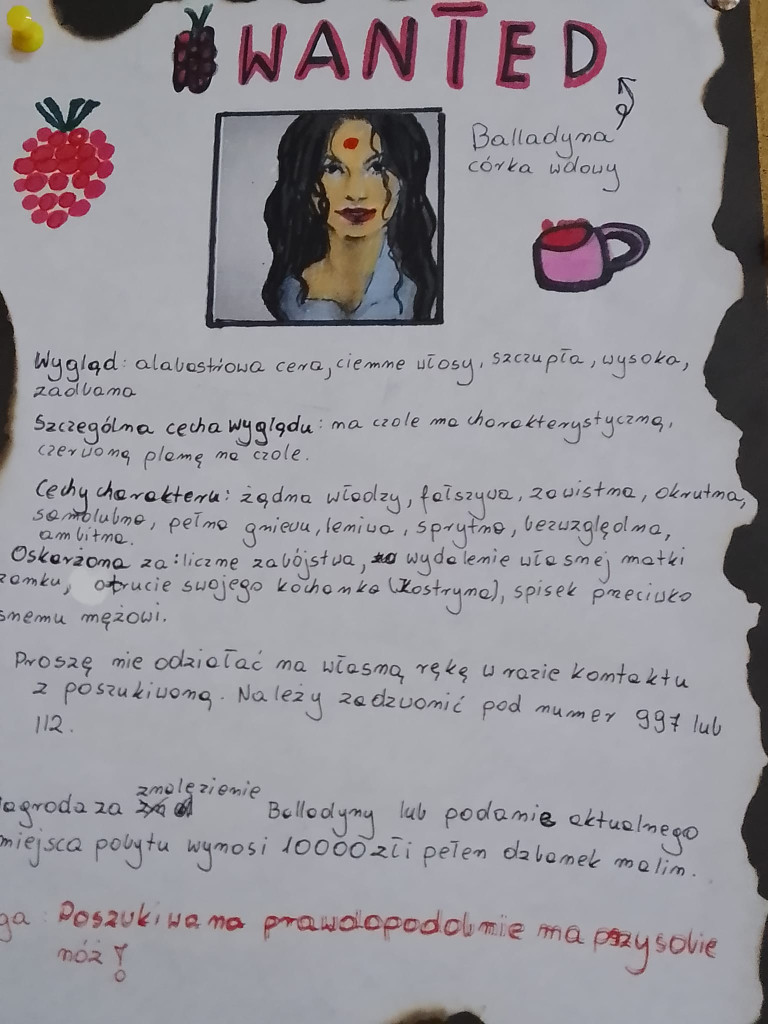 WANTED
Balladyna
córka wdowy
Wygląd: alabastrowa cera, ciemne włosy, szczupła, wysoka,
zadbana
Szczególna cecha wyglądu: na czole ma charakterystyczną,
czerwoną plamę na czole.
Cechy charakteru: żądna władzy, fałszywa, zawistna, okrutna,
samolubna, pełna gniewu, leniwa, sprytna, bezwzględna,
ambitna.
Oskarżona za: liczne zabójstwa, wydalenie własnej matki
zamku, otrucie swojego kochanka (Kostryna), spisek przeciwko
snemu mężowi.
Proszę nie odziałać na własną rękę w razie kontaktu
z poszukiwaną. Należy zadzwonić pod numer 997 lub
112.
agroda za znalezienie Balladyny lub podanie aktualnego
miejsca pobytu wynosi 10000 zł i pełen dzbanek malin.
ga: Poszukiwana prawdopodobnie ma przy sobie
nóż!